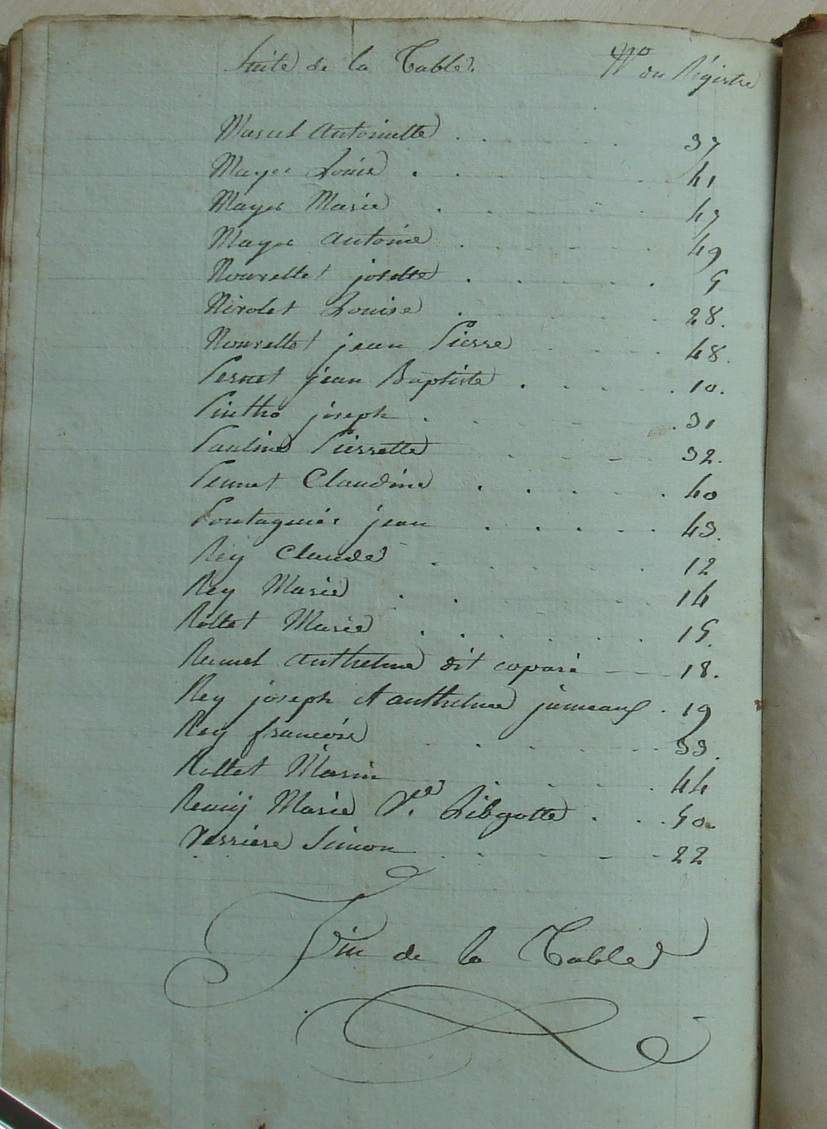 Suite de la Table. N° du Régistre
Marcel antoinette . . . 37
Mayer Louis . . 41
Mayer Marie . . . 47
Mayer antoine . . . 49
Nourellet josette . . . 5
Nirolet Louise . . . 28.
Nourellet jean Pierre . . . 48.
Pernet jean Baptiste . . . 10.
joseph . . . 31
Pauline Pierrette . . . 32.
Claudine . . . 40
jean . . . 43.
Rey Claude . . . 12
Rey Marie . . . 14
Rollet Marie . . . 15.
anthelme dit coparé 18.
Rey joseph et anthelme jumeaux . 19
Rey francois . . . 33.
Rollet Marin . . . 44
Marie V.ve . . . 50.
Verriere Simon . . . 22
Fin de la Table